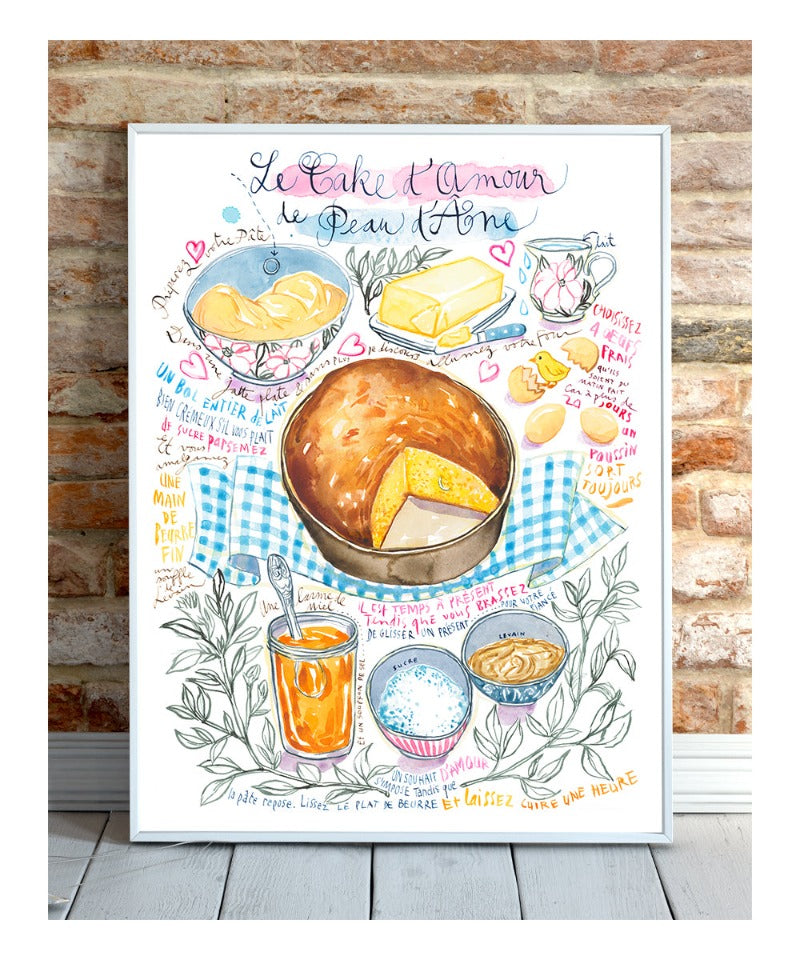 Le Cake d'Amour
de Peau d'Âne
Préparez votre Pâte
Dans une jatte plate & sans plus je discours allumez votre Four
lait
CHOISISSEZ
4 OEUFS
FRAIS
QU'ILS
SOIENT DU
MATIN FAIT
Car à plus de
20 JOURS
UN
POUSSIN
SORT
TOUJOURS
UN BOL ENTIER DE LAIT
BIEN CRÉMEUX S'IL VOUS PLAIT
de SUCRE PARSEMEZ
Et vous
amalgamez
UNE
MAIN
DE
BEURRE
FIN
un
souffle
de
Levain
Une Larme de
Miel
ET UN SOUPÇON DE SEL
IL EST TEMPS À PRÉSENT
Tandis que vous BRASSEZ
DE GLISSER UN PRÉSENT POUR VOTRE
FIANCÉ
SUCRE
LEVAIN
UN SOUHAIT D'AMOUR
S'IMPOSE Tandis que
la pâte repose. Lissez LE PLAT DE BEURRE Et laissez CUIRE UNE HEURE